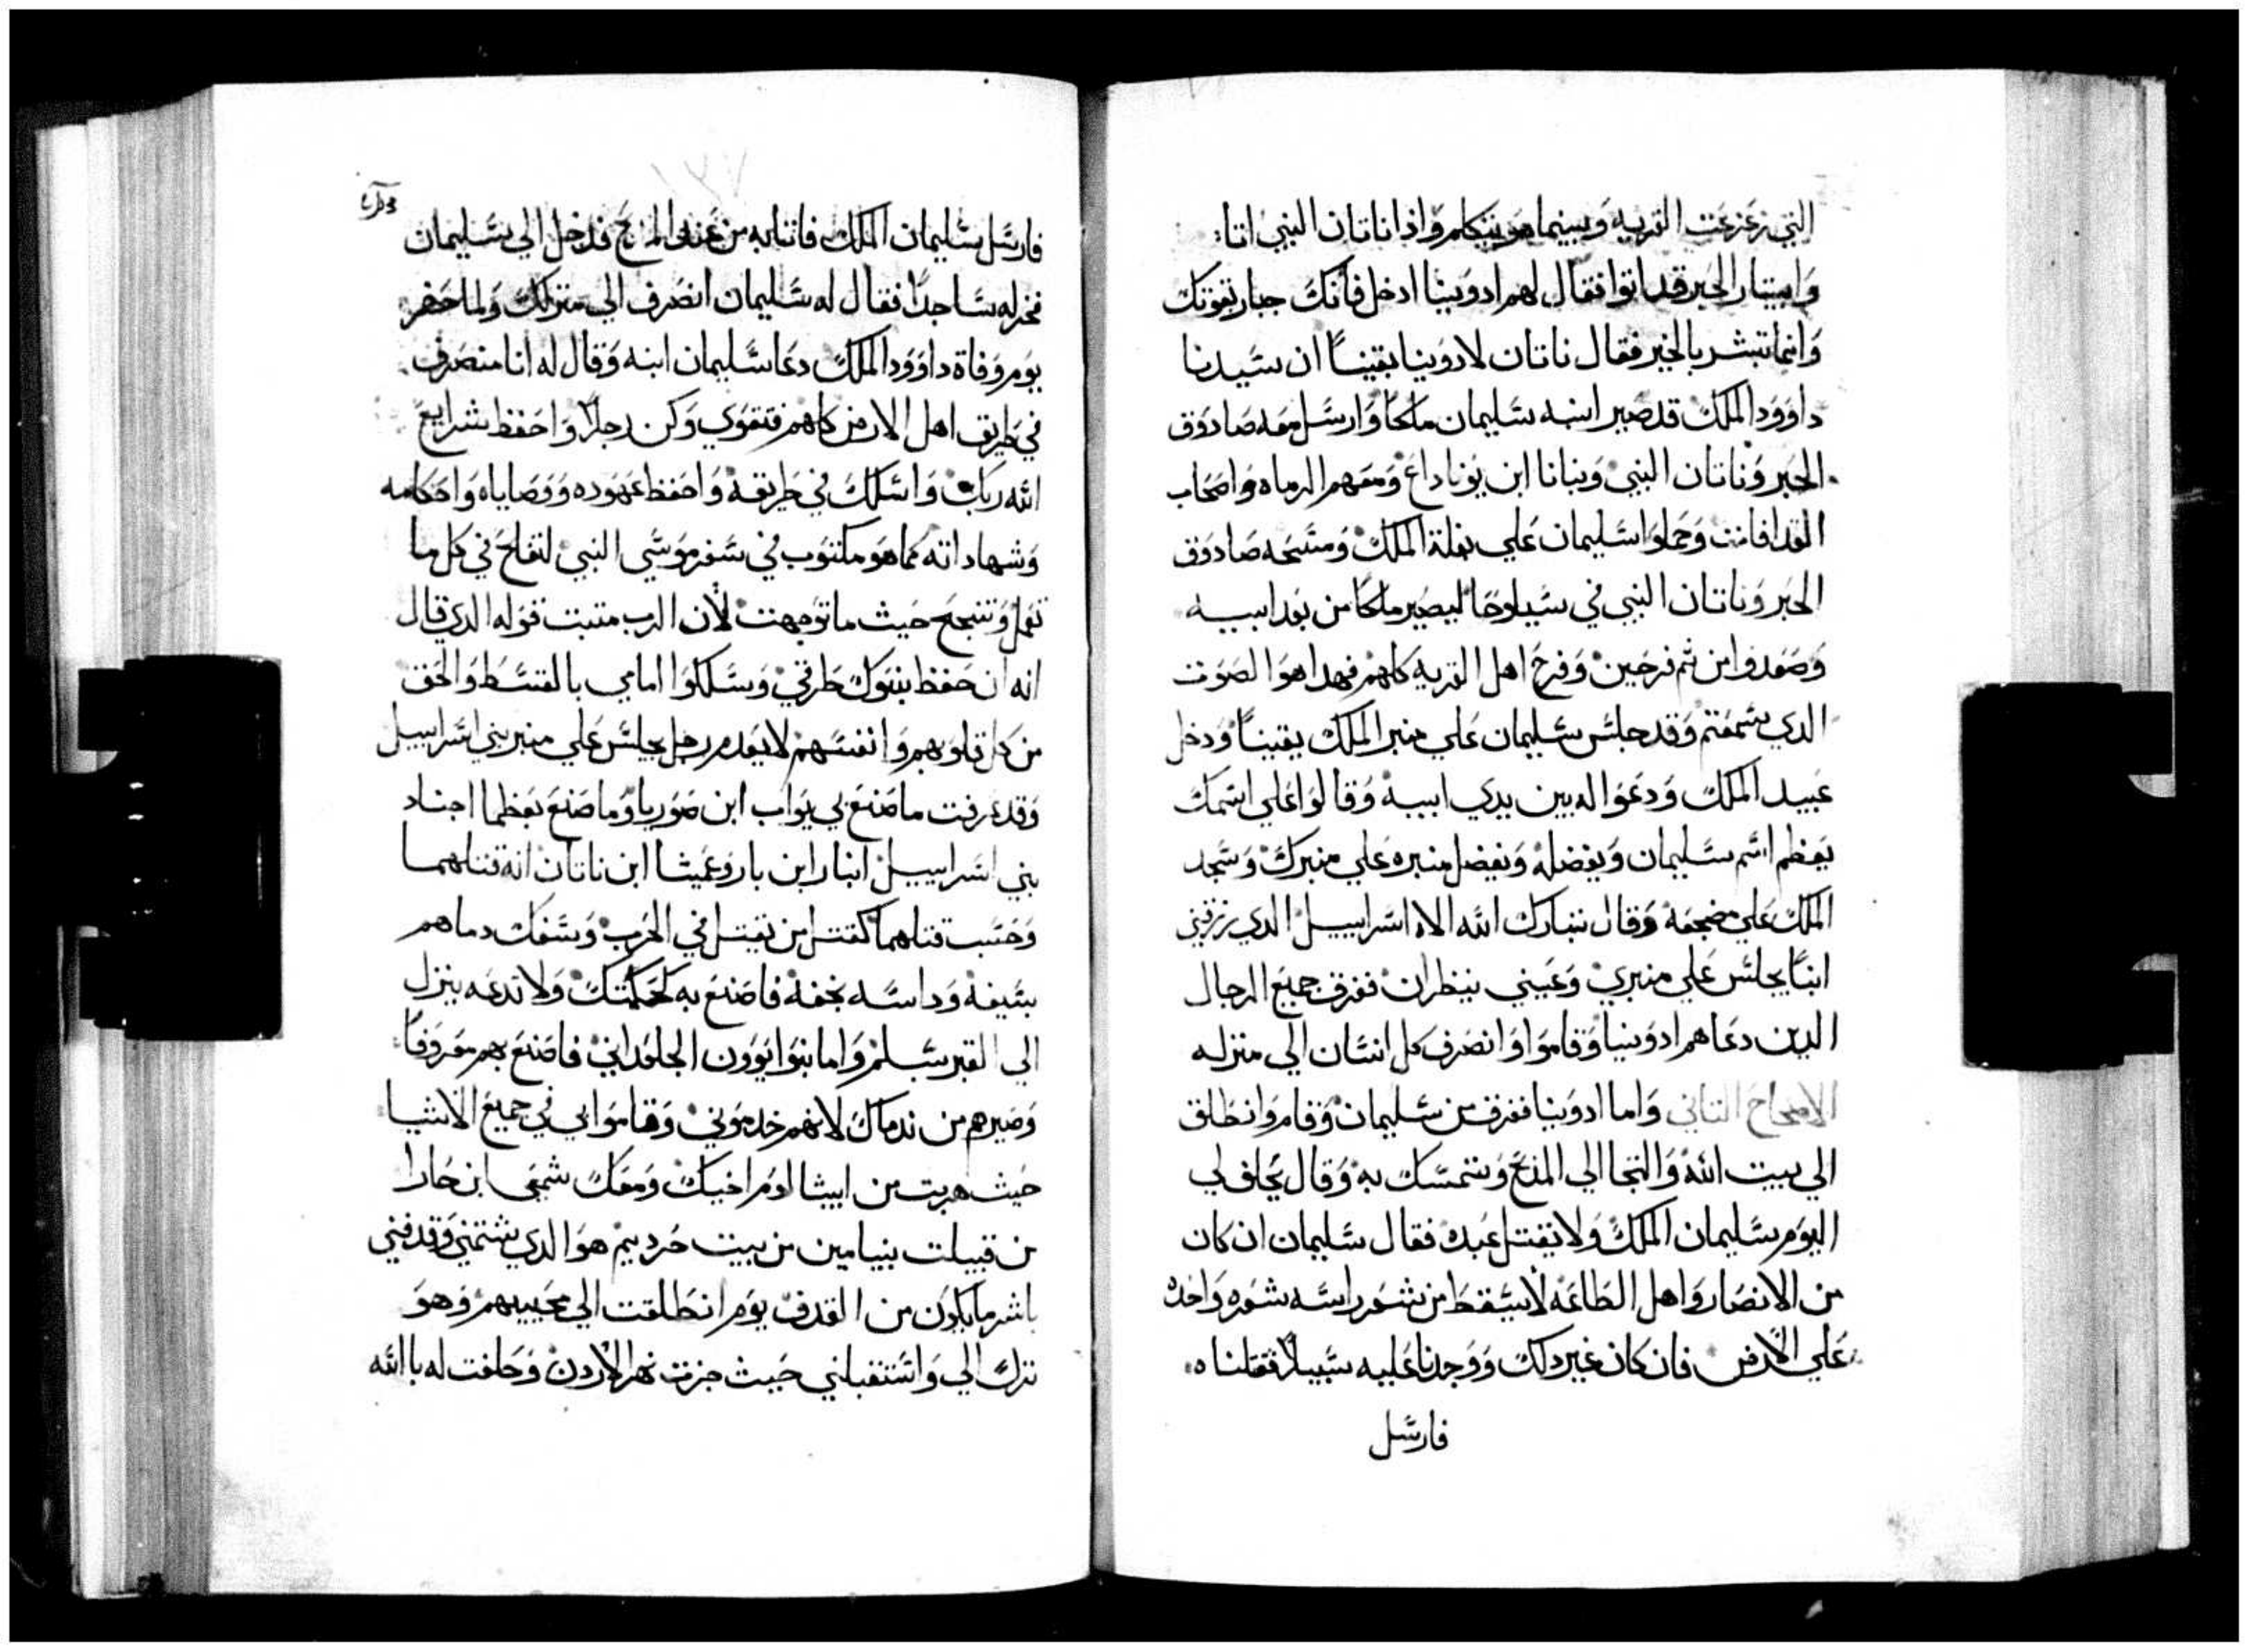 التي زعزعت القريه وبينما هو يتكلم واذا ناتان النبي اتا
وابيتار الحبر قد اتوا فقال لهم ادونيا ادخل فانك جبار بقوتك
وانما تبشر بالخير فقال ناتان لادونيا يقيناً ان سيدنا
داوود الملك قد صير ابنه سليمان ملكاً وارسل معه صادوق
الحبر وناتان النبي وبنانا ابن يوناداع ومعهم الرماه واصحاب
القدافات وحملوا سليمان علي بغلة الملك ومسحه صادوق
الحبر وناتان النبي في سيلوحا ليصير ملكاً من بعد ابيه
وصعدوا من ثم فرحين وفرح اهل القريه كلهم فهدا هوا الصوت
الدي سمعتم وقد جلس سليمان علي منبر الملك يقيناً ودخل
عبيد الملك ودعوا له بين يدي ابيه وقالوا علي اسمك
يعظم اسم سليمان ويفضله ويفضل منبره علي منبرك وسجد
الملك علي مضجعه وقال تبارك الله الاه اسراييل الدي رزقني
ابناً يجلس علي منبري وعيني ينظران ففرق جميع الرجال
الدين دعاهم ادونيا وقاموا وانصرف كل انسان الي منزله
الاصحاح التاني واما ادونيا ففرق من سليمان وقام وانطلق
الي بيت الله والتجا الي المذبح وتمسك به وقال يحلف لي
اليوم سليمان الملك ولا يقتل عبدك فقال سليمان ان كان
من الانصار واهل الطاعه لا يسقط من شعر راسه شعره واحده
علي الارض فان كان غير دلك ووجدنا عليه سبيلاً فقتلناه
فارسل
فارسل سليمان الملك فاتا به من عند المذبح فدخل الي سليمان
فخر له ساجداً فقال له سليمان انصرف الي منزلك ولما حضر
يوم وفاة داوود الملك دعا سليمان ابنه وقال له انا منصرف
في طريق اهل الارض كلهم فتقوي وكن رجلاً واحفظ شرايع
الله ربك واسلك في طريقه واحفظ عهوده ووصاياه واحكامه
وشهاداته كما هو مكتوب في سفر موسي النبي لتفلح في كل ما
تعمل وتنجح حيث ما توجهت لأن الرب متبت قوله الدي قال
انه ان حفظ بنوك طرقي وسلكوا امامي بالقسط والحق
من كل قلوبهم وانفسهم لا يعدم رجل يجلس علي منبر بني اسراييل
وقد عرفت ما صنع بي يواب ابن صوريا وما صنع بعظما اجناد
بني اسراييل ابنار ابن بار وعميشا ابن ناتان انه قتلهما
وحسب قتلهما كقتل من يقتل في الحرب وسفك دماهم
بسيفه وداسه بخفه فاصنع به كحكمتك ولا تدعه ينزل
الي القبر بسلم واما بنوا يوون الجلعداني فاصنع بهم معروفاً
وصيرهم من ندماك لانهم خدموني وقاموا بي في جميع الاشيا
حيث هربت من ابيشالوم اخيك ومعك شمعي ابن حارا
من قبيلت بنيامين من بيت حرديم هوا الدي شتمني وقدفني
باشر ما يكون من القدف يوم انطلقت الي محيبيهم وهو
نزل الي واستقبلني حيث جزت نهر الاردن وحلفت له بالله